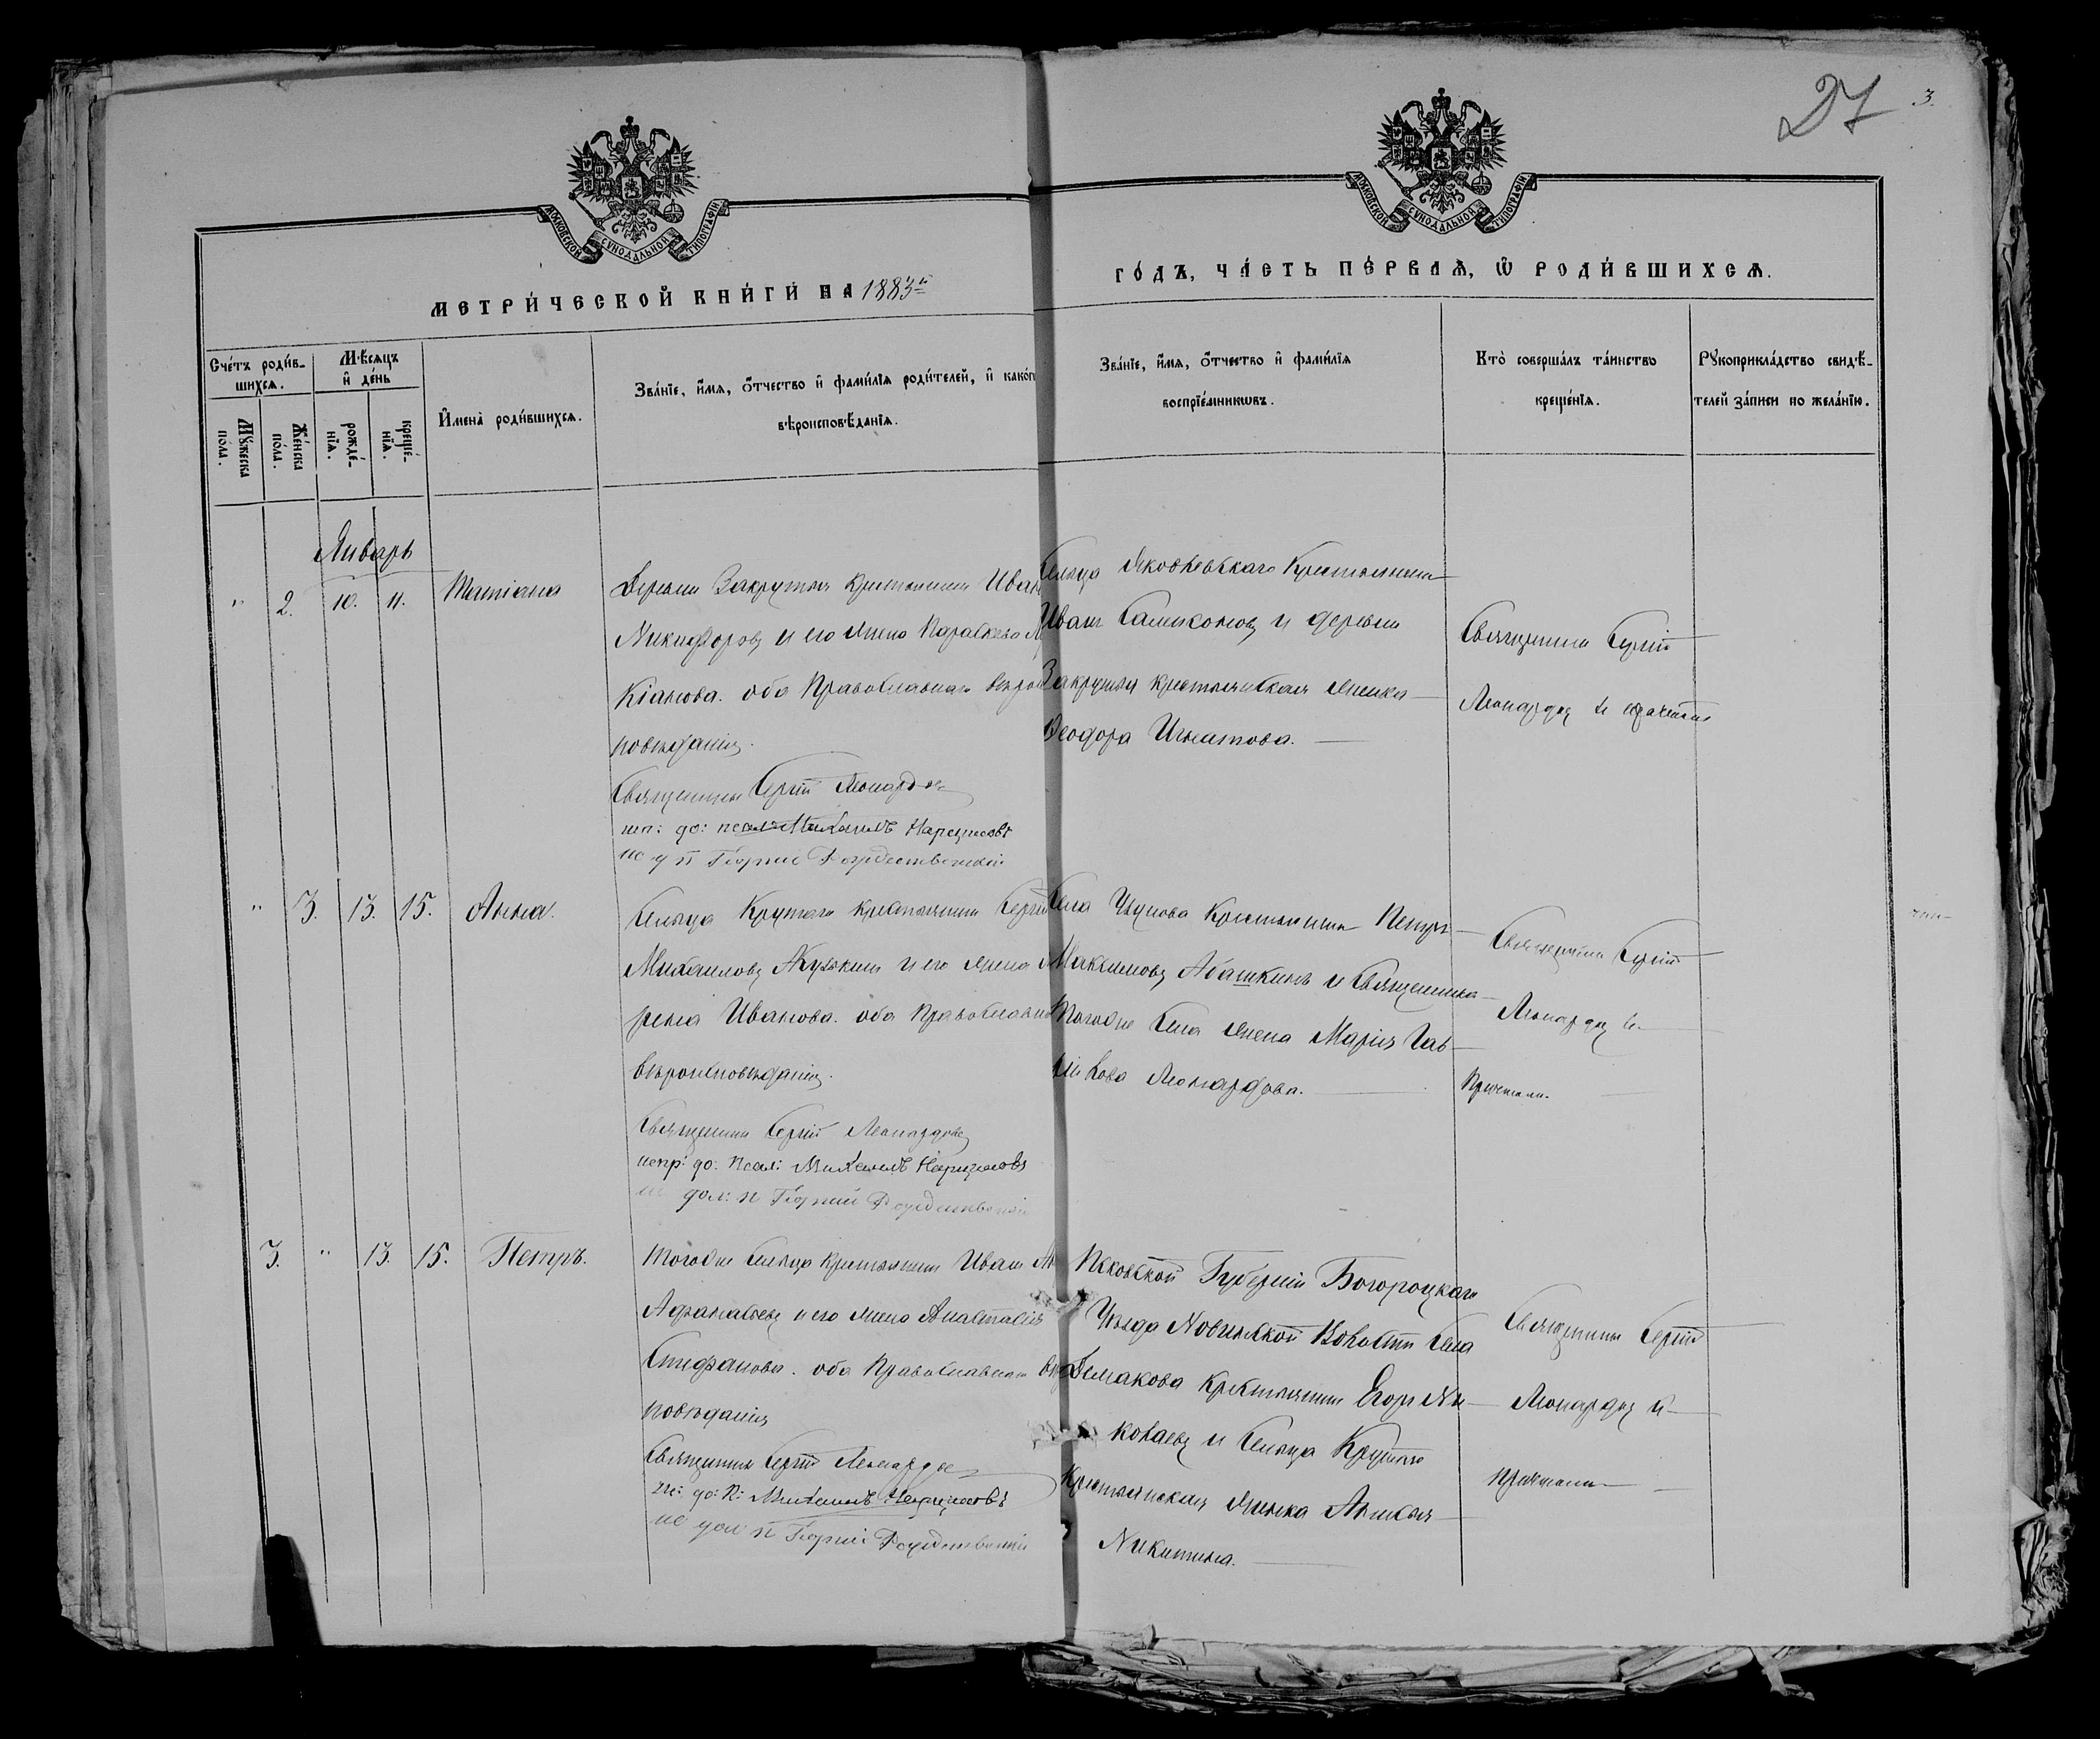 27
3.
МОСКОВСКОЙ СУНОДАЛЬНОЙ ТИПОГРАФІИ
МОСКОВСКОЙ СУНОДАЛЬНОЙ ТИПОГРАФІИ
МЕТРИ́ЧЕСКОЙ КНИ́ГИ НА 1883й
ГО́ДЪ, ЧА́СТЬ ПЕ́РВАѦ, Ѡ҆ РОДИ́ВШИХСѦ.
Сче́тъ роди́в-
шихсѧ.
Мѣ́сѧцъ
и҆ де́нь
Мꙋ́жеска
по́ла.
Же́нска
по́ла.
рожде́-
нїѧ.
креще́-
нїѧ.
И҆мена̀ роди́вшихсѧ.
Зва́нїе, и҆́мѧ, ѻ҆́тчество и҆ фами́лїѧ роди́телей, и҆ како́гѡ
вѣроисповѣ́данїѧ.
Зва́нїе, и҆́мѧ, ѻ҆́тчество и҆ фами́лїѧ
воспрїе́мникѡвъ.
Кто̀ соверша́лъ та́инство
креще́нїѧ.
Рꙋкоприкла́дство свидѣ́-
телей за́писи по жела́нїю.
Январь
" 2. 10. 11. Татіана
Деревни Закрутья крестьянинъ Иванъ
Никифоровъ и его жена Параскева
Кіанова. оба Православнаго вѣрои
повѣданія.
Священникъ Сергій Леонардовъ
до: псал: Михаилъ Нарциссовъ
Георгій Рождественскій
Сельца Яковлевскаго Крестьянинъ
Иванъ Самсоновъ и деревни
Закрутья крестьянская женка
Ѳеодора Игнатова.
Священникъ Сергій
Леонардовъ съ причтомъ
" 3. 13. 15. Анна.
Сельца Крутаго крестьянинъ Сергій
Михаиловъ и его жена
рена Иванова. оба Православнаго
вѣроисповѣданія.
Священникъ Сергій Леонардовъ
испр: до: псал: Михаилъ Нарциссовъ
дол: п Георгій Рождественскій
Села Крестьянинъ Петръ
Максимовъ Абашкинъ и Священника
тогоже села жена Марія Гав-
Леонардова.
Священникъ Сергій
Леонардовъ съ
причтомъ.
3. " 13. 15. Петръ.
Тогоже сельца крестьянинъ Иванъ
Афанасьевъ и его жена Анастасія
Стефанова. оба Православнаго вѣро
повѣданія
Священникъ Сергій Леонардовъ
до: п: Михаилъ Нарциссовъ
дол: п Георгій Рождественскій
Московской Губерніи Богороцкаго
Уѣзда Новинской Волости села
крестьянинъ Егоръ Ни-
колаевъ и сельца Крутаго
Крестьянская женка Анисья
Никитина.
Священникъ Сергій
Леонардовъ съ
причтомъ